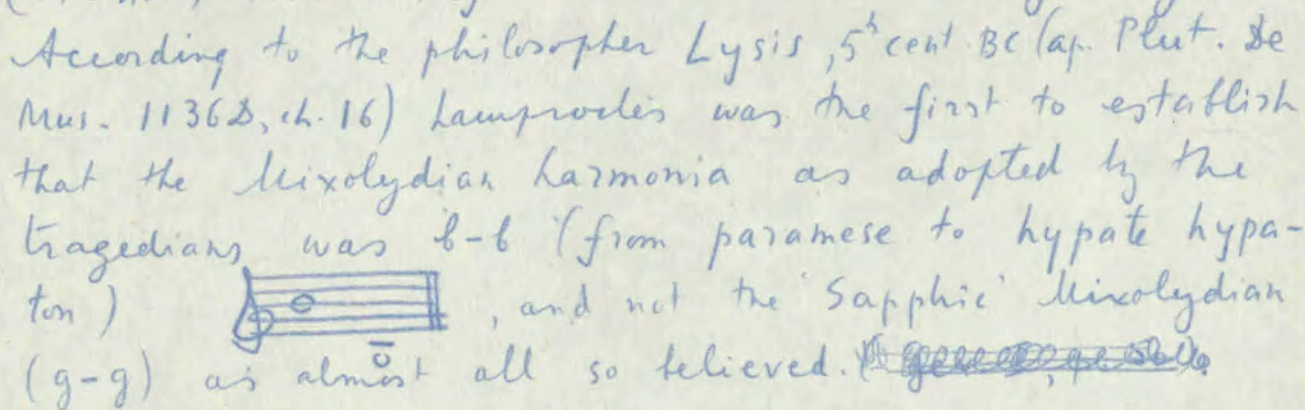 According to the philosopher Lysis, 5th cent. BC (ap. Plut. De
Mus. 1136D, ch. 16) Lamprocles was the first to establish
that the Mixolydian harmonia as adopted by the
tragedians was b-b (from paramese to hypate hypa-
ton) , and not the 'Sapphic' Mixolydian
(g-g) as almost all so believed.